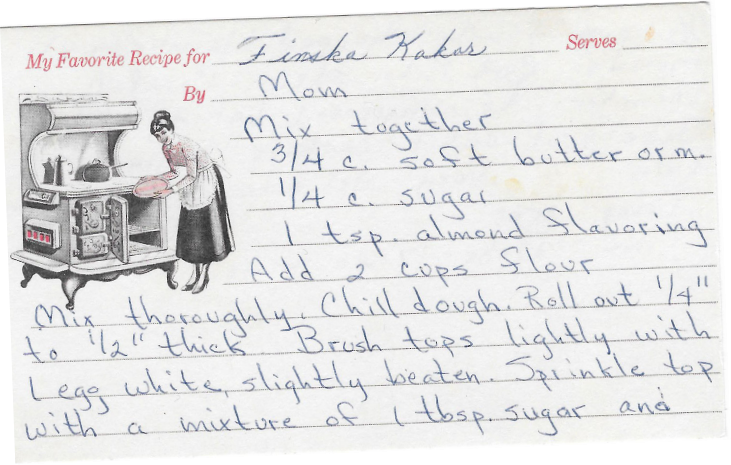 My Favorite Recipe for Finska Kakor Serves
By Mom
Mix together
3/4 c. soft butter or m.
1/4 c. sugar
1 tsp. almond flavoring
Add 2 cups flour
Mix thoroughly. Chill dough. Roll out 1/4"
to 1/2" thick. Brush tops lightly with
1 egg white, slightly beaten. Sprinkle top
with a mixture of 1 tbsp. sugar and